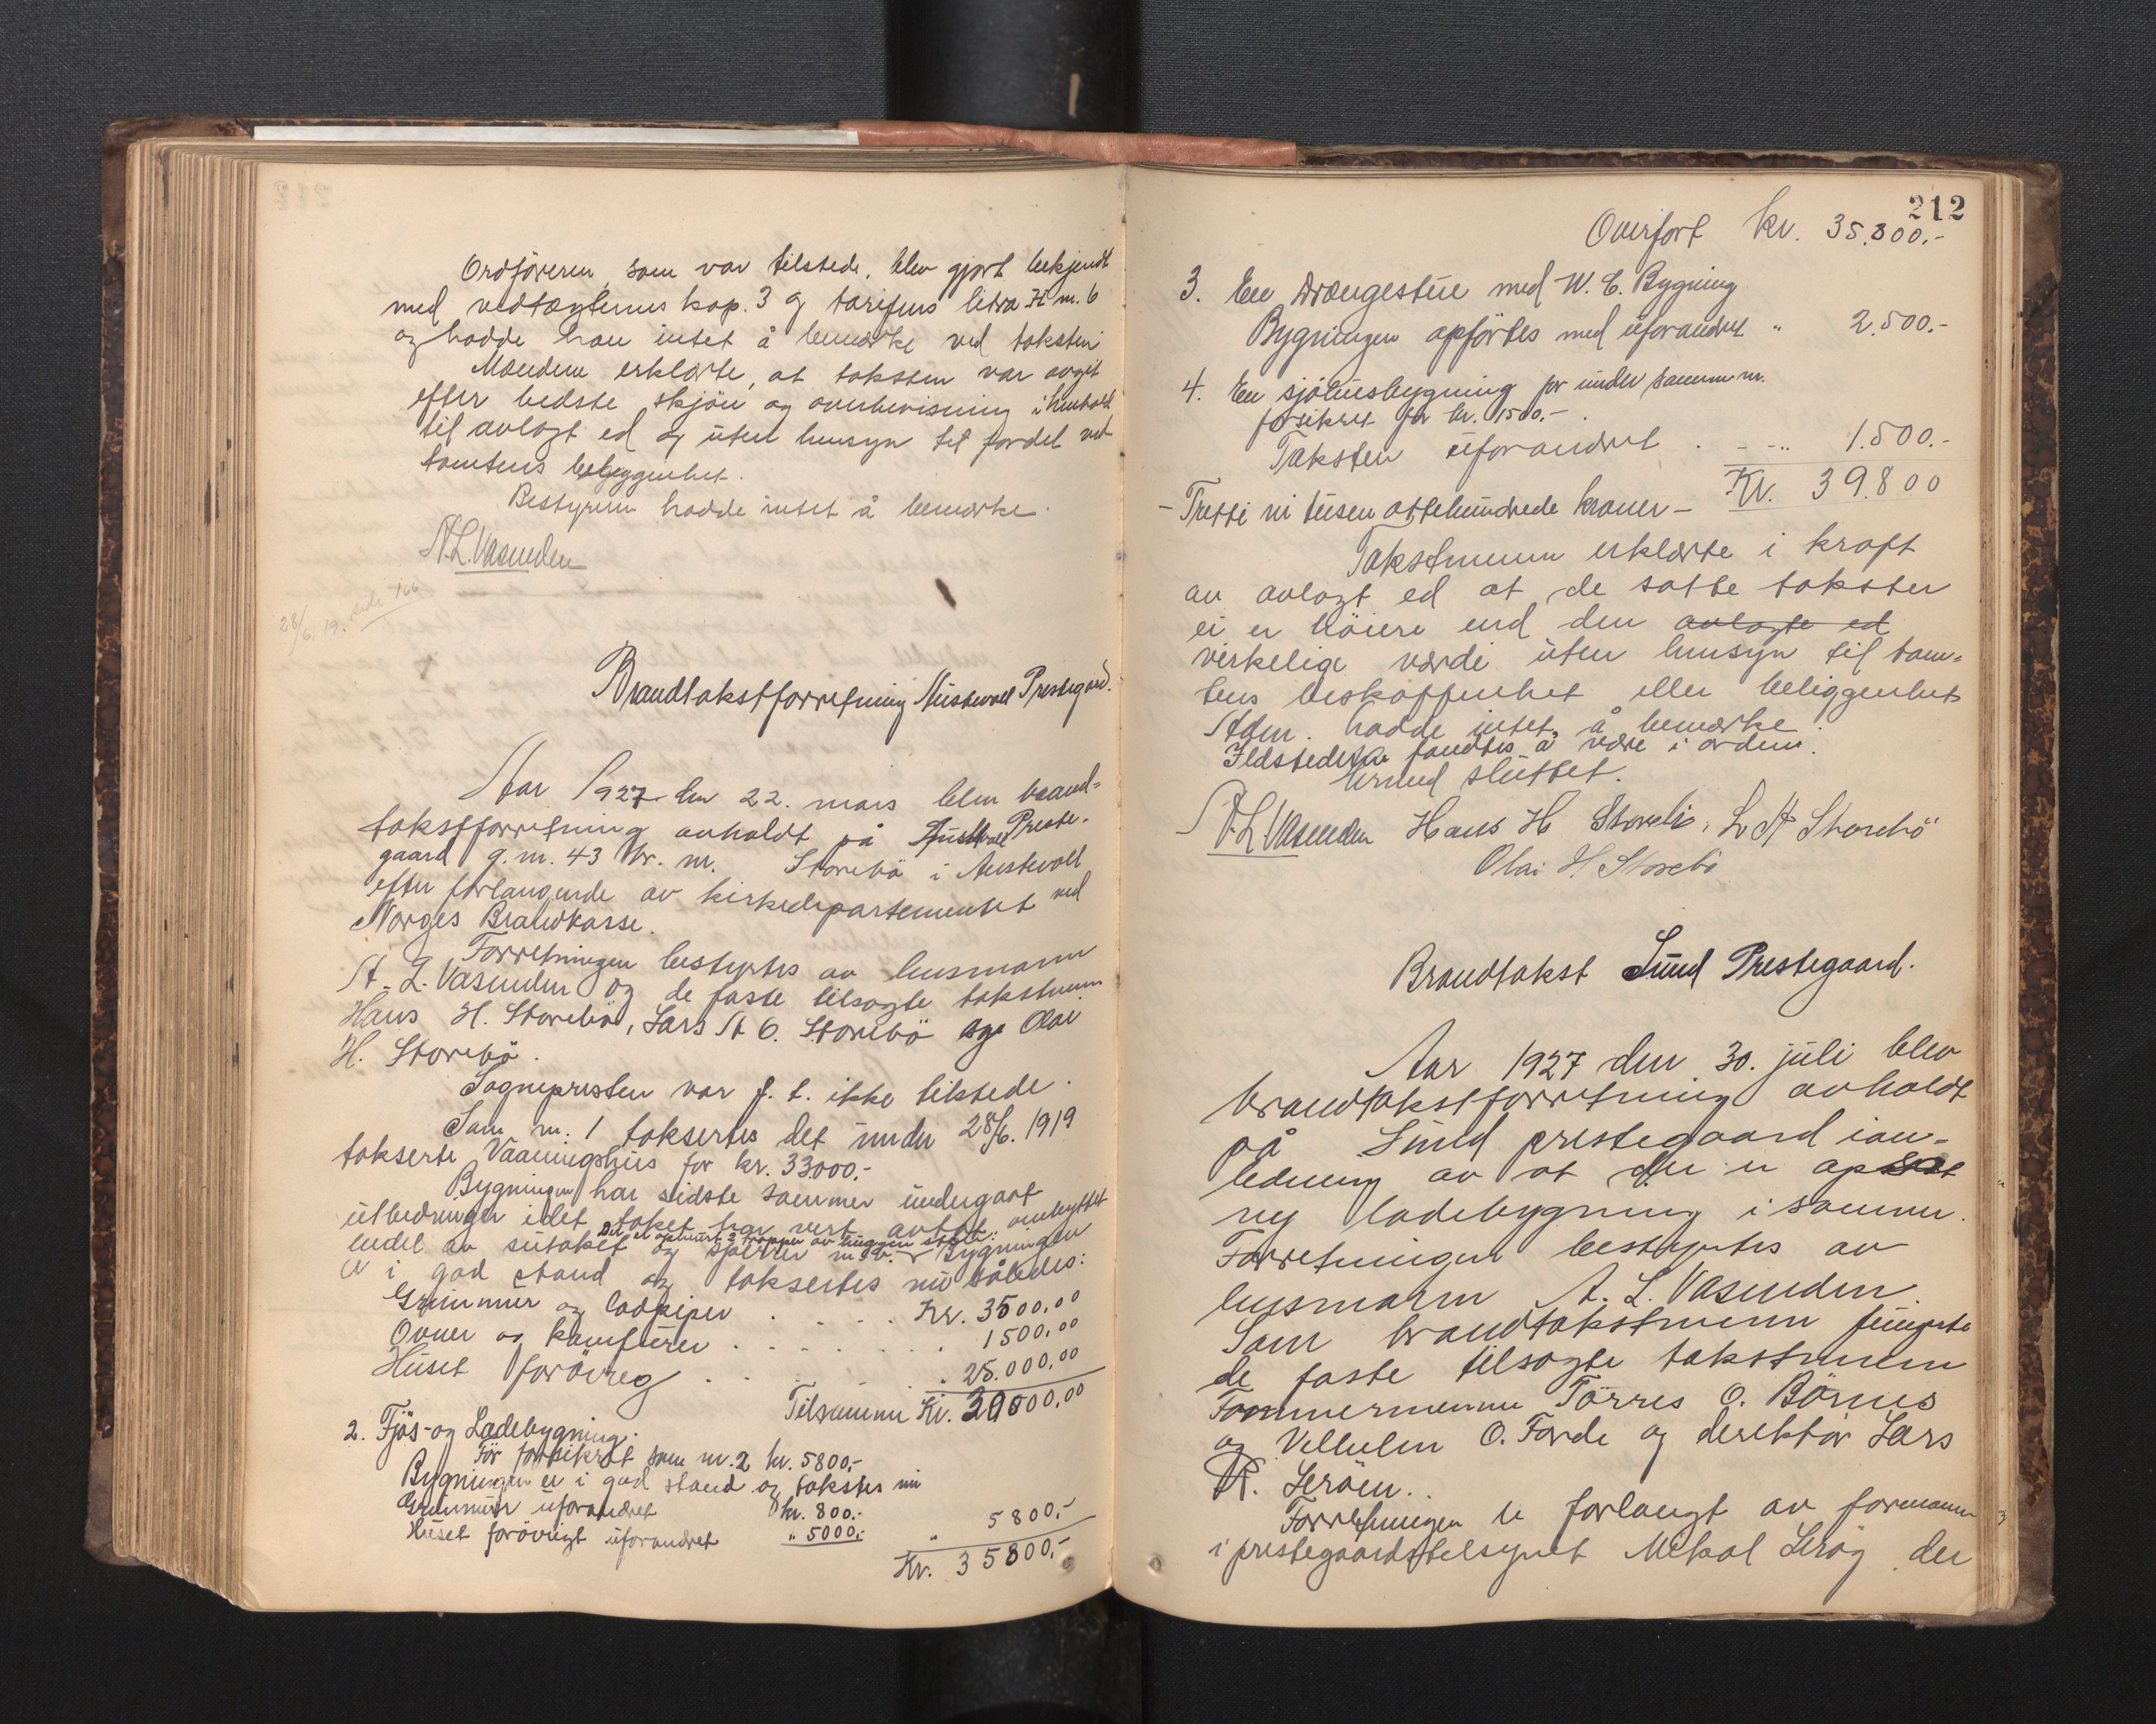 Ordföreren, som var tilstede, blev gjort bekjendt
med vedtægternes kap. 3 og tarifens litra H nr. 6
og hadde han intet å bemerke ved taksten
Mændene erklærte, at taksten var avgit
efter bedste skjön og overbevisning i henhold
til avlagt ed og uten hensyn til fordel ved
tomtens bebyggenhet.
Bestyreren hadde intet å bemerke.
A.L. Vasenden
28/6. 19. side 166
Brandtakstforretning Austevoll Prestegaard.
Aar 1927 den 22. mars blev brand-
takstforretning avholdt på Austevoll Preste-
gaard g.nr. 43 br. nr. Storebö i Austevoll
efter forlangende av kirkedepartementet ved
Norges Brandkasse.
Forretningen bestyrtes av lensmann
A. L. Vasenden og de faste tilsagte takstmenn
Hans H. Storebö, Lars A. O. Storebö og Olai
H. Storebö.
Sognepresten var f. t. ikke tilstede.
Som nr. 1 taksertes det under 28/6. 1919
takserte Vaaningshus for kr. 33000.-
Bygningen har sidste sommer undergaat
utbedringer idet taket har vert avtat, ombyttet
Det er opmurt 2 trapper av huggen sten.
endel av sutaket og sperrer m. v. Bygningen
er i god stand og taksertes nu således:
Grunmur og lodpiper . . . . Kr. 3500,00
Ovner og komfurer . . . . . . 1500,00
Huset forövreg . . . . . " 25.000,00
Tilsammen Kr. 30000,00
2. Fjös- og Ladebygning.
För forsikret som nr. 2 kr. 5800,-
Bygningen er i god stand og takstes nu
Grunmur uforandret kr. 800.-
Huset forövrigt uforandret " 5000.- " 5800.-
Kr. 35800,-
212
Overfört kr. 35.800.-
3. En Drængestue med W. C. Bygning
Bygningen opförtes med uforandret " 2.500.-
4. En sjöhusbygning för under samme nr.
forsikret for kr. 1500.-
Taksten uforandret . - " 1.500.-
Kr. 39.800
- Tretti ni tusen ottehundrede kroner -
Takstmenn erklærte i kraft
av avlagt ed at de satte takster
ei er höiere end den avlagte ed
virkelige værdi uten hensyn til tom-
tens beskaffenhet eller beliggenhet
Adm. hadde intet å bemerke.
Ildstederne fandtes å være i orden.
Ermed sluttet.
A.L. Vasenden Hans H Storebö, L A Storebö
Olai H. Storebö
Brandtakst Sund Prestegaard.
Aar 1927 den 30. juli blev
brandtakstforretning avholdt
på Sund prestegaard i an-
ledning av at der er opsat
ny ladebygning i samme.
Forretningen bestyrtes av
lensmann A. L. Vasenden.
Som brandtakstmenn fungerte
de faste tilsagte takstmenn
Tömmermenn Törres O. Börnes
og Vilhelm O. Förde og direktör Lars
R. Leröen.
Forretningen er forlangt av formann
i prestegaardstilsynet Mikal Leröy der